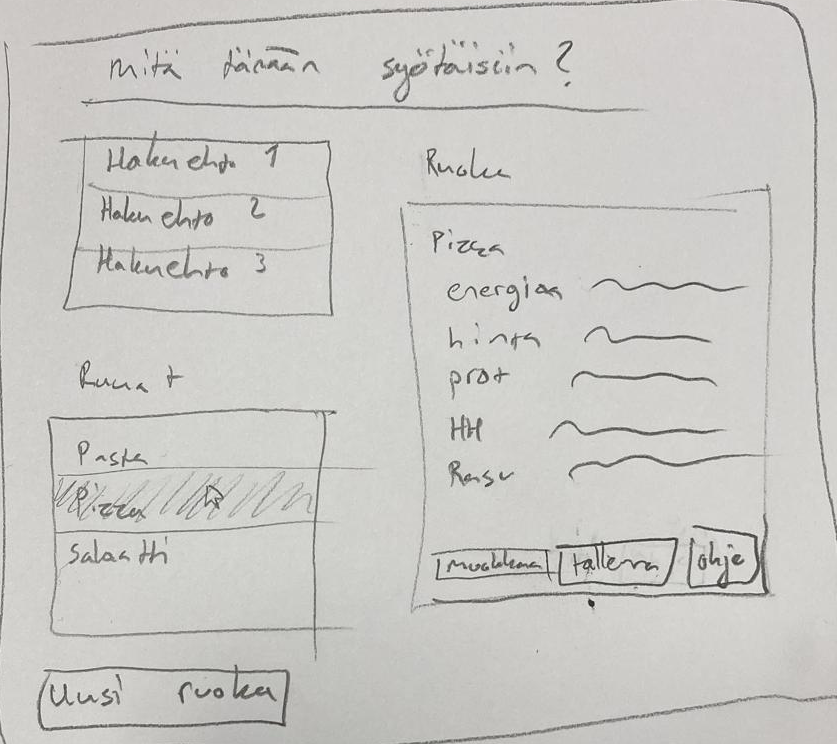 mitä tänään syötäisiin?
Hakuehto 1
Hakuehto 2
Hakuehto 3
Ruuat
Pasta
Pizza
Salaatti
Uusi ruoka
Ruoka
Pizza
energiaa
hinta
prot
HH
Rasv
muokkaa tallenna ohje